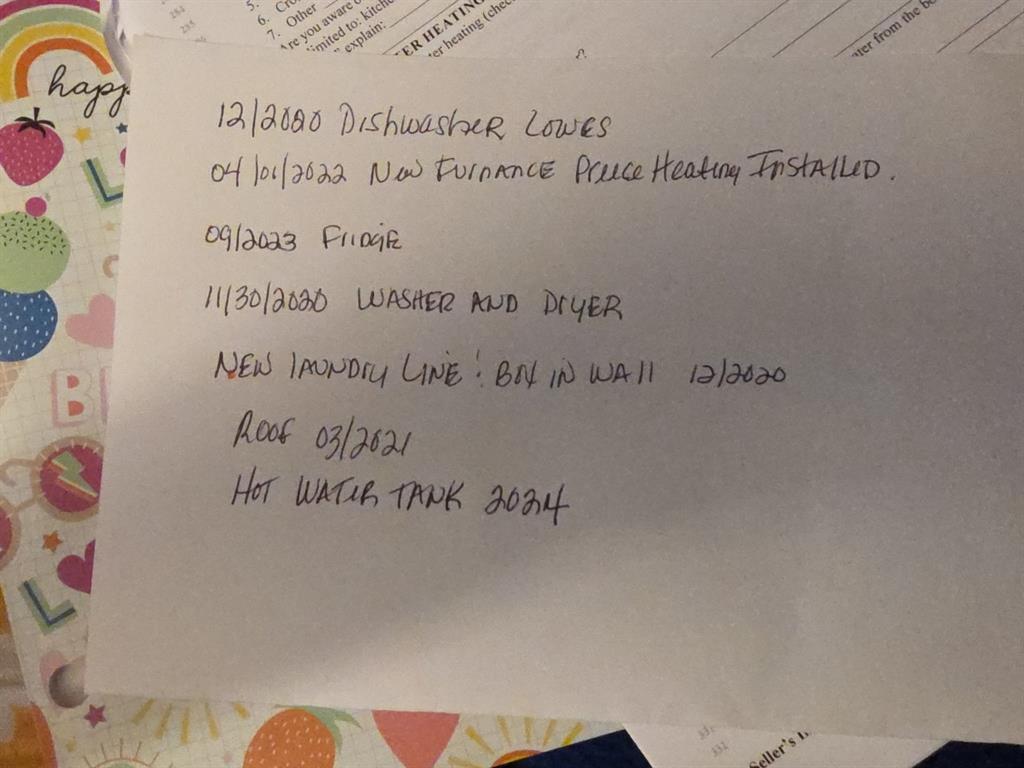 5.
6. Cro
7. Other
Are you aware o
limited to: kitche
explain:
ER HEATING
er heating (chec
ater from the be
232
233
happ
12/2020 Dishwasher Lowes
04/01/2022 New Furnance Preece Heating Installed.
09/2023 Fridge
11/30/2020 WASHER AND DryER
NEW laundry LINE! Box IN WAll 12/2020
Roof 03/2021
Hot WATER TANK 2024
B
L
331
332
Seller's I